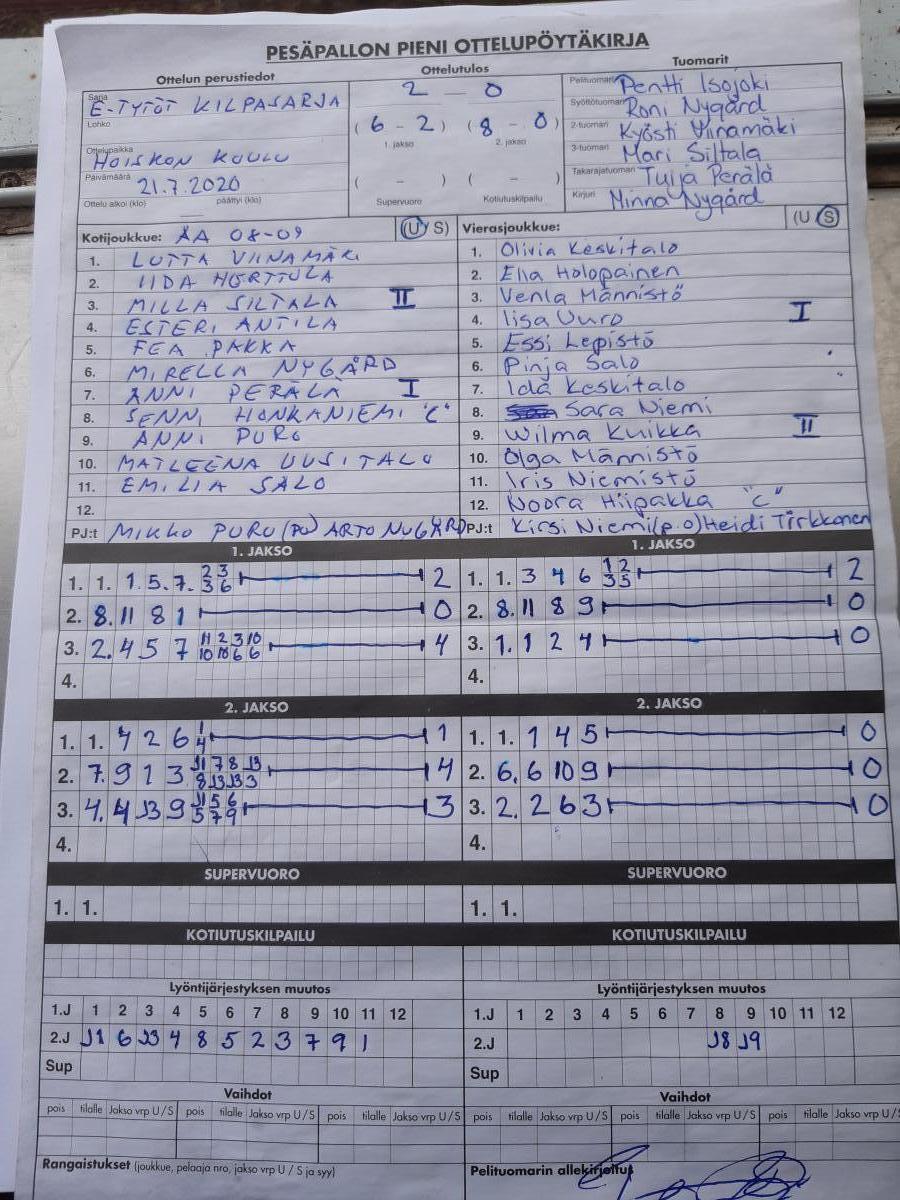 PESÄPALLON PIENI OTTELUPÖYTÄKIRJA
Ottelun perustiedot Ottelutulos Tuomarit
Sarja E-TYTÖT KILPASARJA
Lohko
Ottelupaikka HOISKON KOULU
Päivämäärä 21.7.2020
Ottelu alkoi (klo) päättyi (klo)
2 – 0
(6 – 2) (8 – 0)
1. jakso 2. jakso
( – ) ( – )
Supervuoro Kotiutuskilpailu
Pelituomari Pentti Isojoki
Syöttötuomari Roni Nygård
2-tuomari Kyösti Viinamäki
3-tuomari Mari Siltala
Takarajatuomari Tuija Perälä
Kirjuri Minna Nygård
Kotijoukkue: ÄA 08-09 (U S)
1. LOTTA VIINAMÄKI
2. IIDA HERTTULA
3. MILLA SILTALA II
4. ESTERI ANTILA
5. FEA PAKKA
6. MIRELLA NYGÅRD
7. ANNI PERÄLÄ I
8. SENNI HONKANIEMI "C"
9. ANNI PURO
10. MATLEENA UUSITALO
11. EMILIA SALO
12.
PJ:t MIKKO PURO (PO) ARTO NYGÅRD
Vierasjoukkue: (U S)
1. Olivia Keskitalo
2. Ella Holopainen
3. Venla Männistö
4. Iisa Vuro I
5. Essi Lepistö
6. Pinja Salo
7. Ida Keskitalo
8. Sara Niemi
9. Wilma Kuikka II
10. Olga Männistö
11. Iris Niemistö
12. Noora Hiipakka "C"
PJ:t Kirsi Niemi (p.o) Heidi Tirkkonen
1. JAKSO
1. 1. 1. 5. 7. 2 3 2
3 6
2. 8. 11 8 1 0
3. 2. 4 5 7 11 2 3 10 4
10 10 6 6
4.
1. JAKSO
1. 1. 3 4 6 1 2 2
3 5
2. 8. 11 8 9 0
3. 1. 1 2 7 0
4.
2. JAKSO
1. 1. 4 2 6 1 1
4
2. 7. 9 1 3 J1 7 8 J3 4
8 J3 J3 3
3. 4. 4 J3 9 J1 5 6 3
5 7 9
4.
2. JAKSO
1. 1. 1 4 5 0
2. 6. 6 10 9 0
3. 2. 2 6 3 0
4.
SUPERVUORO SUPERVUORO
1. 1. 1. 1.
KOTIUTUSKILPAILU KOTIUTUSKILPAILU
Lyöntijärjestyksen muutos
1.J 1 2 3 4 5 6 7 8 9 10 11 12
2.J J1 6 J3 4 8 5 2 3 7 9 1
Sup
Lyöntijärjestyksen muutos
1.J 1 2 3 4 5 6 7 8 9 10 11 12
2.J J8 J9
Sup
Vaihdot Vaihdot
pois tilalle Jakso vrp U / S pois tilalle Jakso vrp U / S pois tilalle Jakso vrp U / S
pois tilalle Jakso vrp U / S pois tilalle Jakso vrp U / S pois tilalle Jakso vrp U / S
Rangaistukset (joukkue, pelaaja nro, jakso vrp U / S ja syy) Pelituomarin allekirjoitus